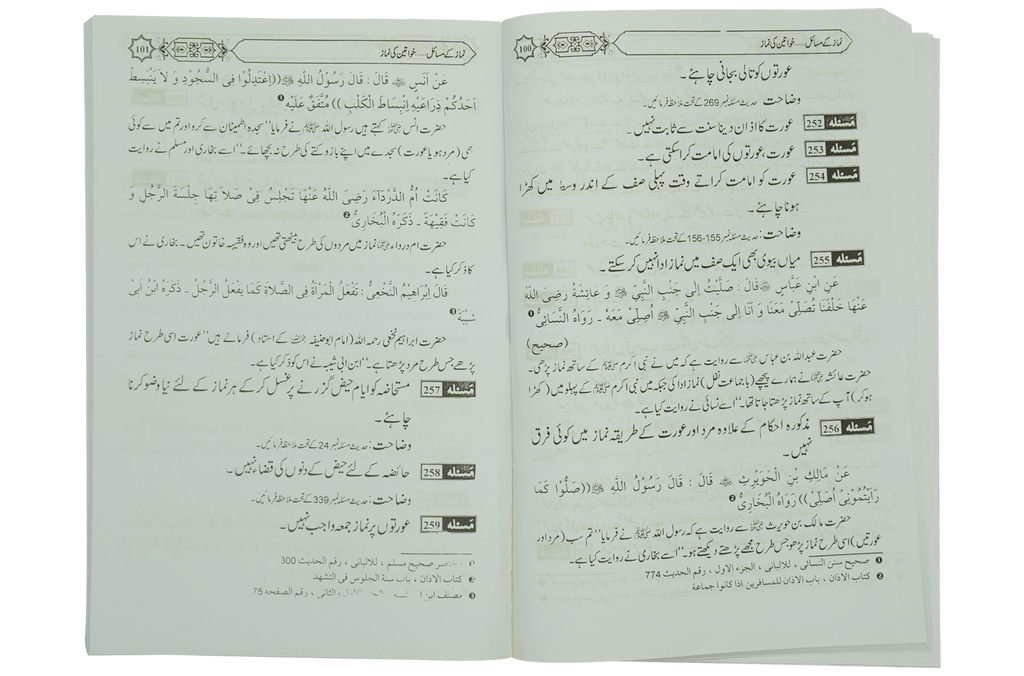 نماز کے مسائل.....خواتین کی نماز
100
عورتوں کو تالی بجانی چاہئے۔
وضاحت: حدیث مسئلہ نمبر 269 کے تحت ملاحظہ فرمائیں۔
مسئلہ 252 عورت کا اذان دینا سنت سے ثابت نہیں۔
مسئلہ 253 عورت، عورتوں کی امامت کرا سکتی ہے۔
مسئلہ 254 عورت کو امامت کراتے وقت پہلی صف کے اندر وسط میں کھڑا
ہونا چاہئے۔
وضاحت: حدیث مسئلہ نمبر 155-156 کے تحت ملاحظہ فرمائیں۔
مسئلہ 255 میاں بیوی بھی ایک صف میں نماز ادا نہیں کر سکتے۔
عَنِ ابْنِ عَبَّاسٍ ؓ قَالَ : صَلَّيْتُ إِلٰى جَنْبِ النَّبِيِّ ﷺ وَ عَائِشَةُ رَضِيَ اللّٰهُ
عَنْهَا خَلْفَنَا تُصَلِّيْ مَعَنَا وَ أَنَا إِلٰى جَنْبِ النَّبِيِّ ﷺ أُصَلِّيْ مَعَهُ ۔ رَوَاهُ النَّسَائِيُّ ❶
(صحیح)
حضرت عبداللہ بن عباس ؓ سے روایت ہے کہ میں نے نبی اکرم ﷺ کے ساتھ نماز پڑھی۔
حضرت عائشہ ؓ نے ہمارے پیچھے (باجماعت نفل) نماز ادا کی جبکہ میں نبی اکرم ﷺ کے پہلو میں (کھڑا
ہوکر) آپ کے ساتھ نماز پڑھتا جاتا تھا۔“ اسے نسائی نے روایت کیا ہے۔
مسئلہ 256 مذکورہ احکام کے علاوہ مرد اور عورت کے طریقہ نماز میں کوئی فرق
نہیں۔
عَنْ مَالِكِ بْنِ الْحُوَيْرِثِ ؓ قَالَ : قَالَ رَسُوْلُ اللّٰهِ ﷺ ((صَلُّوْا كَمَا
رَأَيْتُمُوْنِيْ أُصَلِّيْ)) رَوَاهُ الْبُخَارِيُّ ❷
حضرت مالک بن حویرث ؓ سے روایت ہے کہ رسول اللہ ﷺ نے فرمایا ”تم سب (مرد اور
عورتیں) اسی طرح نماز پڑھو جس طرح مجھے پڑھتے دیکھتے ہو۔“ اسے بخاری نے روایت کیا ہے۔
❶ صحیح سنن النسائی ، للالبانی ، الجزء الاول ، رقم الحدیث 774
❷ کتاب الاذان ، باب الاذان للمسافرین اذا کانوا جماعة
نماز کے مسائل.....خواتین کی نماز
101
عَنْ أَنَسٍ ؓ قَالَ : قَالَ رَسُوْلُ اللّٰهِ ﷺ ((اِعْتَدِلُوْا فِي السُّجُوْدِ وَ لَا يَنْبَسِطْ
أَحَدُكُمْ ذِرَاعَيْهِ إِنْبِسَاطَ الْكَلْبِ)) مُتَّفَقٌ عَلَيْهِ ❶
حضرت انس ؓ کہتے ہیں رسول اللہ ﷺ نے فرمایا ”سجدہ اطمینان سے کرو اور تم میں سے کوئی
بھی (مرد ہو یا عورت) سجدے میں اپنے بازو کتے کی طرح نہ بچھائے۔“ اسے بخاری اور مسلم نے روایت
کیا ہے۔
كَانَتْ أُمُّ الدَّرْدَاءِ رَضِيَ اللّٰهُ عَنْهَا تَجْلِسُ فِيْ صَلَاتِهَا جِلْسَةَ الرَّجُلِ وَ
كَانَتْ فَقِيْهَةً ۔ ذَكَرَهُ الْبُخَارِيُّ ❷
حضرت ام درداء ؓ نماز میں مردوں کی طرح بیٹھتی تھیں اور وہ فقیہہ خاتون تھیں۔ بخاری نے اس
کا ذکر کیا ہے۔
قَالَ إِبْرَاهِيْمُ النَّخْعِيُّ : تَفْعَلُ الْمَرْأَةُ فِي الصَّلَاةِ كَمَا يَفْعَلُ الرَّجُلُ ۔ ذَكَرَهُ ابْنُ أَبِيْ
شَيْبَةَ ❸
حضرت ابراہیم نخعی رحمہ اللہ (امام ابو حنیفہ رحمہ اللہ کے استاد) فرماتے ہیں ”عورت اسی طرح نماز
پڑھے جس طرح مرد پڑھتا ہے۔“ ابن ابی شیبہ نے اس کو ذکر کیا ہے۔
مسئلہ 257 مستحاضہ کو ایام حیض گزرنے پر غسل کر کے ہر نماز کے لئے نیا وضو کرنا
چاہئے۔
وضاحت: حدیث مسئلہ نمبر 24 کے تحت ملاحظہ فرمائیں۔
مسئلہ 258 حائضہ کے لئے حیض کے دنوں کی قضاء نہیں۔
وضاحت: حدیث مسئلہ نمبر 339 کے تحت ملاحظہ فرمائیں۔
مسئلہ 259 عورتوں پر نماز جمعہ واجب نہیں۔
❶ مختصر صحیح مسلم ، للالبانی ، رقم الحدیث 300
❷ کتاب الاذان ، باب سنة الجلوس فی التشهد
❸ مصنف ابن ابی شیبہ ، الجزء الاول والثانی ، رقم الصفحه 75